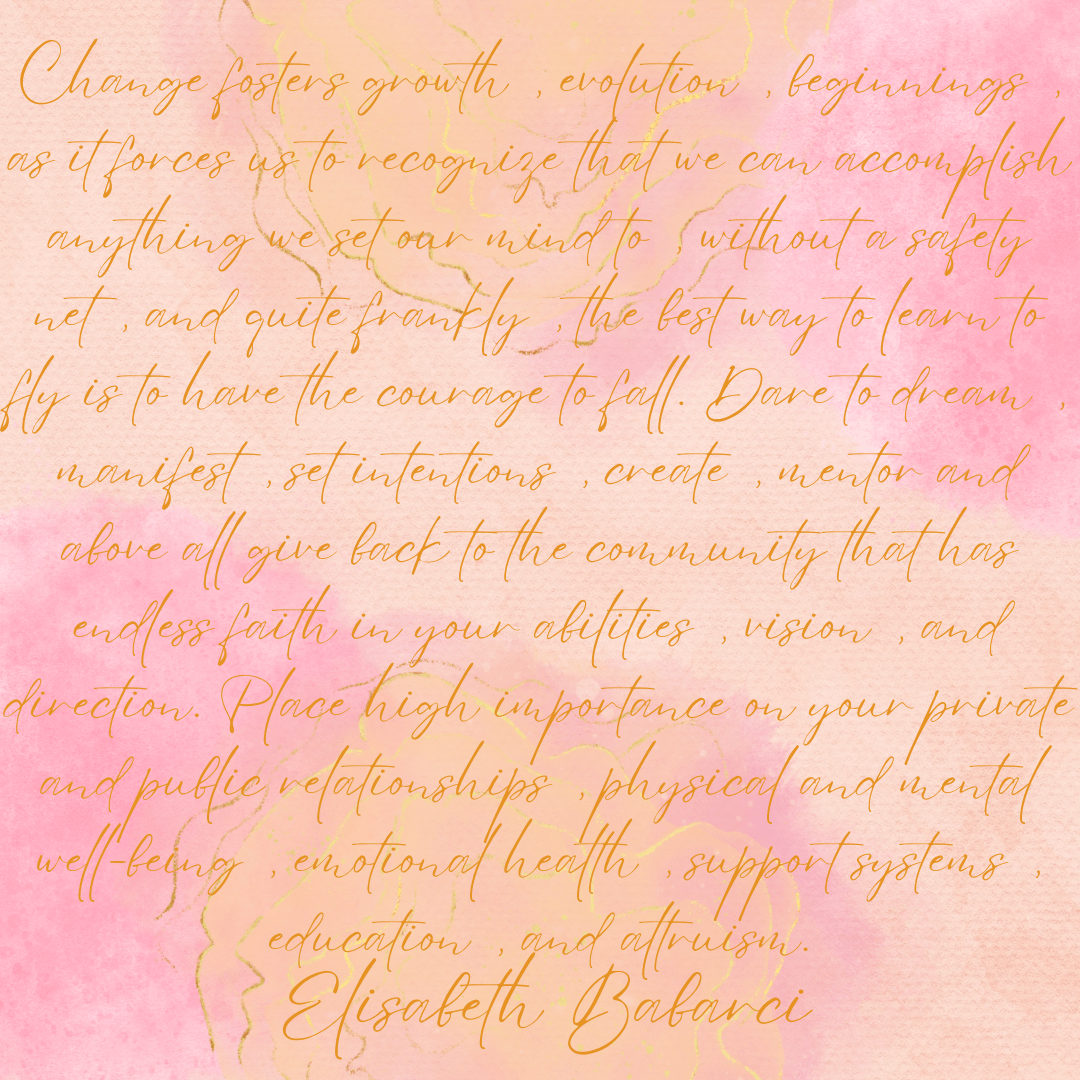 Change fosters growth , evolution , beginnings ,
as it forces us to recognize that we can accomplish
anything we set our mind to , without a safety
net , and quite frankly , the best way to learn to
fly is to have the courage to fall. Dare to dream ,
manifest , set intentions , create , mentor and
above all give back to the community that has
endless faith in your abilities , vision , and
direction. Place high importance on your private
and public relationships , physical and mental
well-being , emotional health , support systems ,
education , and altruism.
Elisabeth Babarci